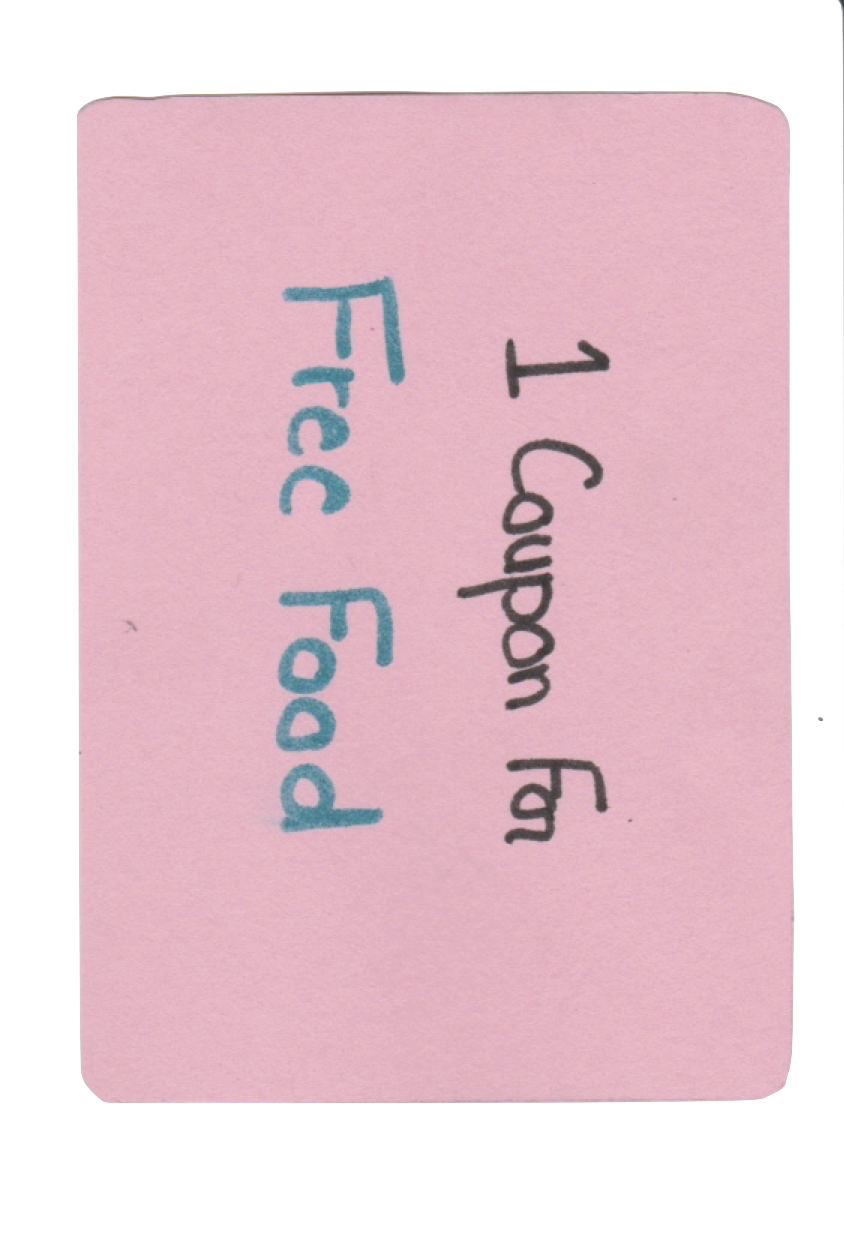 1 Coupon For
Free Food